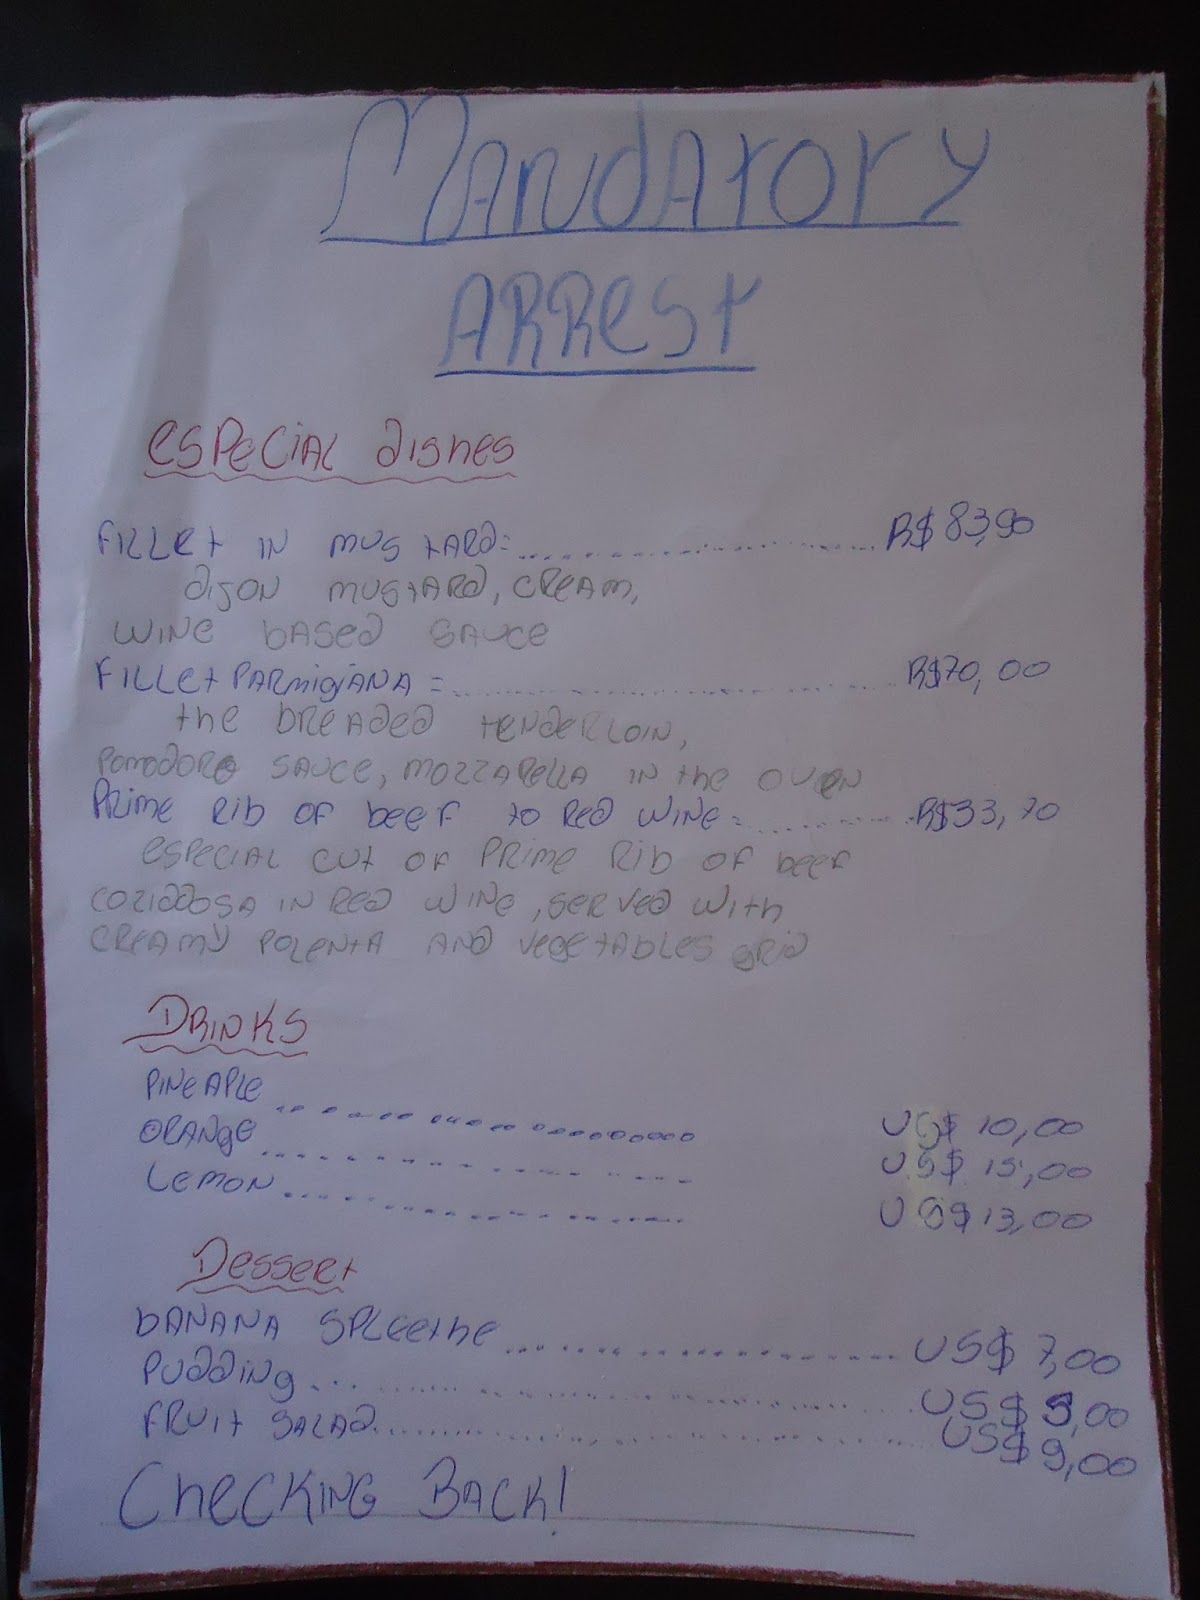 Mandatory
Arrest
Especial dishes
Fillet in mustard=................ R$ 83,90
dijon mustard, cream,
wine based sauce
Fillet Parmigiana =................ R$70,00
the breaded tenderloin,
Pomodoro sauce, mozzarella in the oven
Prime rib of beef to red wine =........ R$33,70
especial cut of prime rib of beef
cozidosa in red wine, served with
creamy polenta and vegetables grid
Drinks
Pineaple ................ US$ 10,00
Orange ................ US$ 15,00
Lemon ................ US$ 13,00
Dessert
banana spleethe ................ US$ 7,00
Pudding ................ US$ ,00
Fruit salad ................ US$ 9,00
Checking Back!